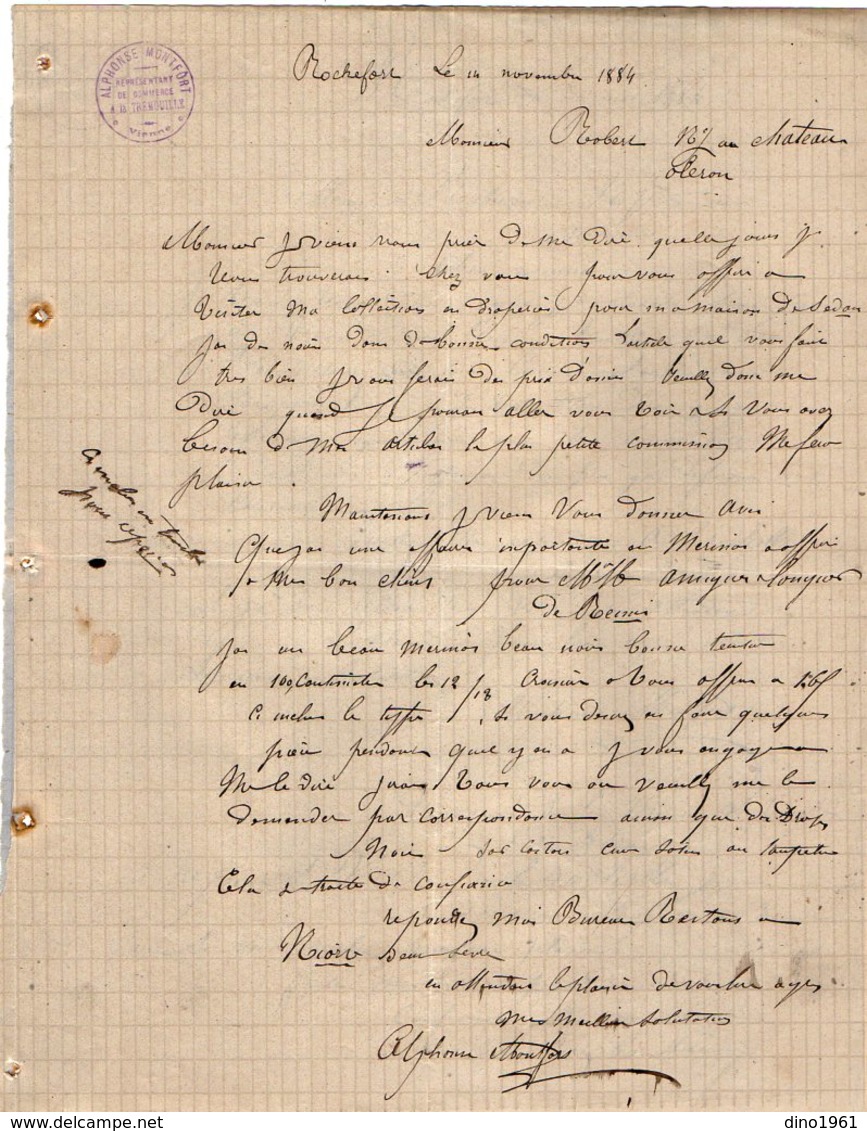 ALPHONSE MONTFORT
REPRÉSENTANT
DE COMMERCE
A la TRIMOUILLE
Vienne
Rochefort Le 14 novembre 1884
Monsieur Robert Nt au chateau
Oleron
Monsieur je viens vous prier de me dire quelle jours je
vous trouverais chez vous pour vous offrir a
visiter ma collections en draperies pour ma maison de Sedan
jai du noir dans de bonnes conditions L'article quel vous faire
tres bien je vous ferais des prix veuillez donc me
dire quand je pourrai aller vous voir et si vous avez
besoin de mes articles la plus petite commission me fera
plaisir
Maintenant je viens vous donner avis
que jai une affaire importante en Merinos a offrir
a mes bon clients pour
de Reims
jai un beau merinos beau noir bonne
en 100 centimetre les 12/13 croisure a vous offrir a
si vous desirez en faire quelques
pièce pendant quel y en a je vous engage a
me le dire jirais vous voir ou veuillez me le
demander par correspondance ainsi que des Draps
Noir
Cela se traite de confiance
repondez moi Bureau Restans a
Niort Deux Sevre
en attendant le plaisir de vous lire agréez
mes meilleur salutations
Alphonse Montfort
dino1961